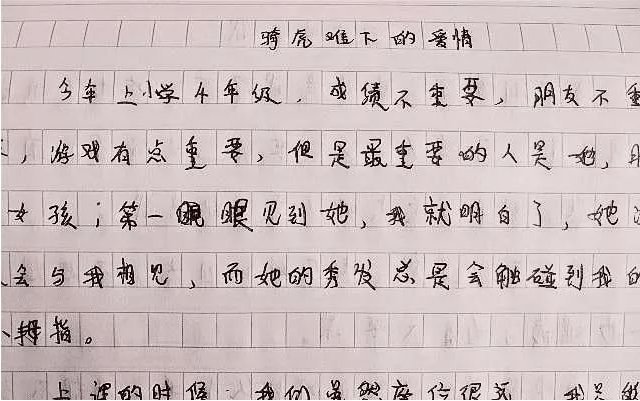 骑虎难下的爱情
今年上小学4年级，成绩不重要，朋友不重
，游戏有点重要，但是最重要的人是她，
女孩；第一眼眼见到她，我就明白了，她
会与我相见，而她的秀发总是会触碰到我的
拇指。
上课的时候 我们虽然座位很远 我只能